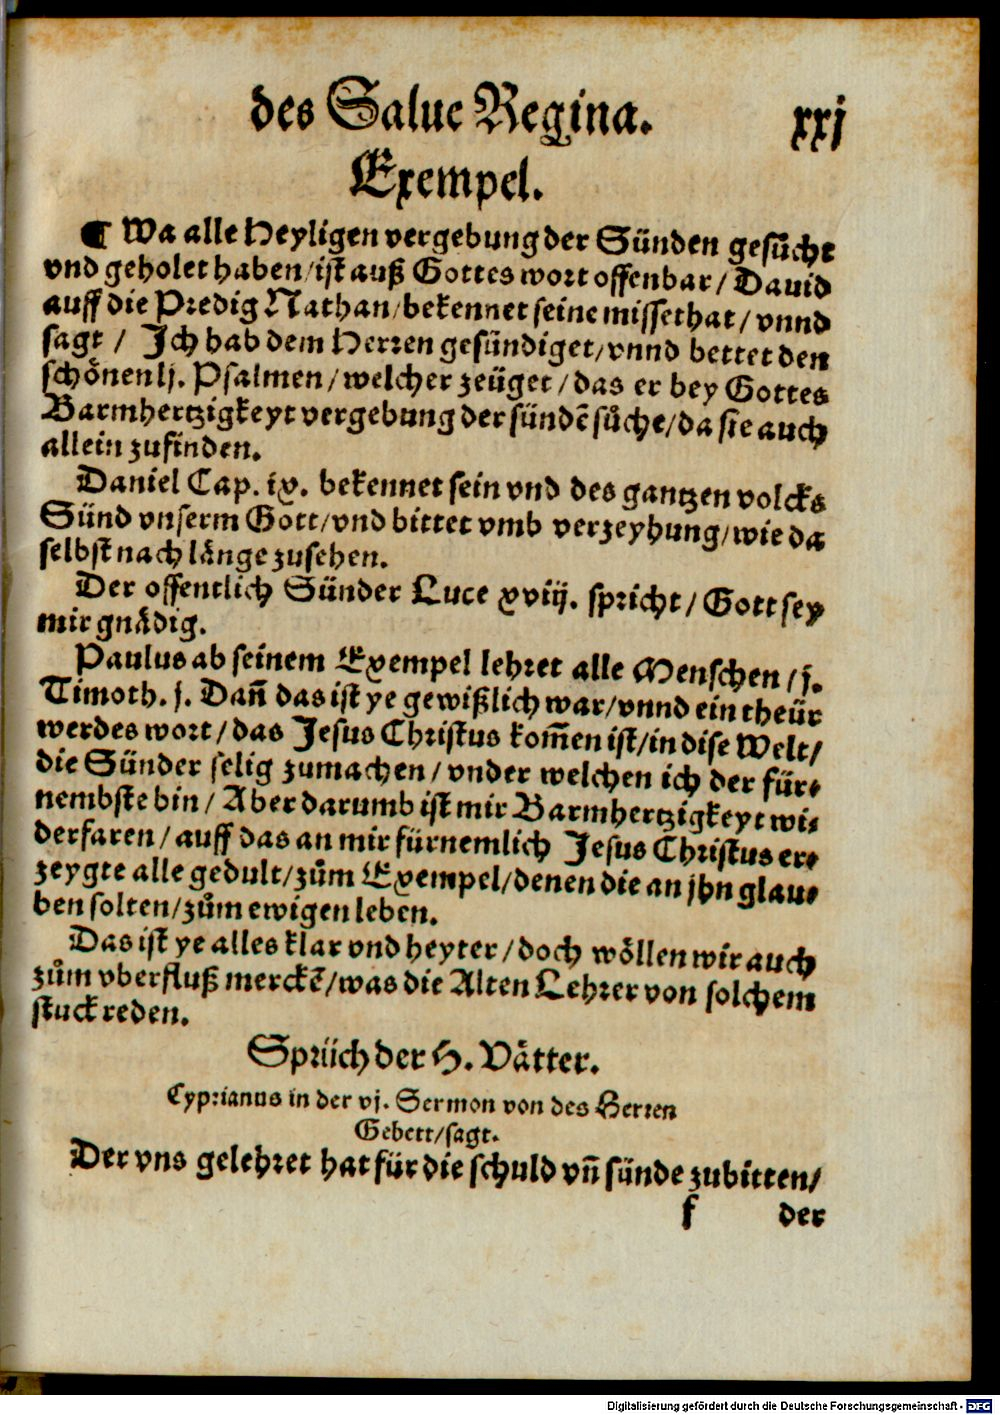 des Salue Regina. xxj
Exempel.
¶ Wa alle Heyligen vergebung der Sünden gesůcht
vnd geholet haben/ist auß Gottes wort offenbar/Dauid
auff die Predig Nathan/bekennet seine missethat/vnnd
sagt/ Ich hab dem Herren gesündiget/vnnd bettet den
schönen lj. Psalmen/welcher zeüget/das er bey Gottes
Barmhertzigkeyt vergebung der sündẽ sůche/da sie auch
allein zufinden.
Daniel Cap. ix. bekennet sein vnd des gantzen volcks
Sünd vnserm Gott/vnd bittet vmb verzeyhung/wie da
selbst nach länge zusehen.
Der offentlich Sünder Luce xviij. spricht/Gott sey
mir gnädig.
Paulus ab seinem Exempel lehret alle Menschen/j.
Timoth. j. Dañ das ist ye gewißlich war/vnnd ein theür
werdes wort/das Jesus Christus kom̃en ist/in dise Welt/
die Sünder selig zumachen/vnder welchen ich der für⸗
nembste bin/Aber darumb ist mir Barmhertzigkeyt wi⸗
derfaren/auff das an mir fürnemlich Jesus Christus er⸗
zeygte alle gedult/zům Exempel/denen die an jhn glau⸗
ben solten/zům ewigen leben.
Das ist ye alles klar vnd heyter/doch wöllen wir auch
zům vberfluß merckẽ/was die Alten Lehrer von solchem
stuck reden.
Sprüch der H. Vätter.
Cyprianus in der vj. Sermon von des Herren
Gebett/sagt.
Der vns gelehret hat für die schuld vñ sünde zubitten/
f der
Digitalisierung gefördert durch die Deutsche Forschungsgemeinschaft - DFG